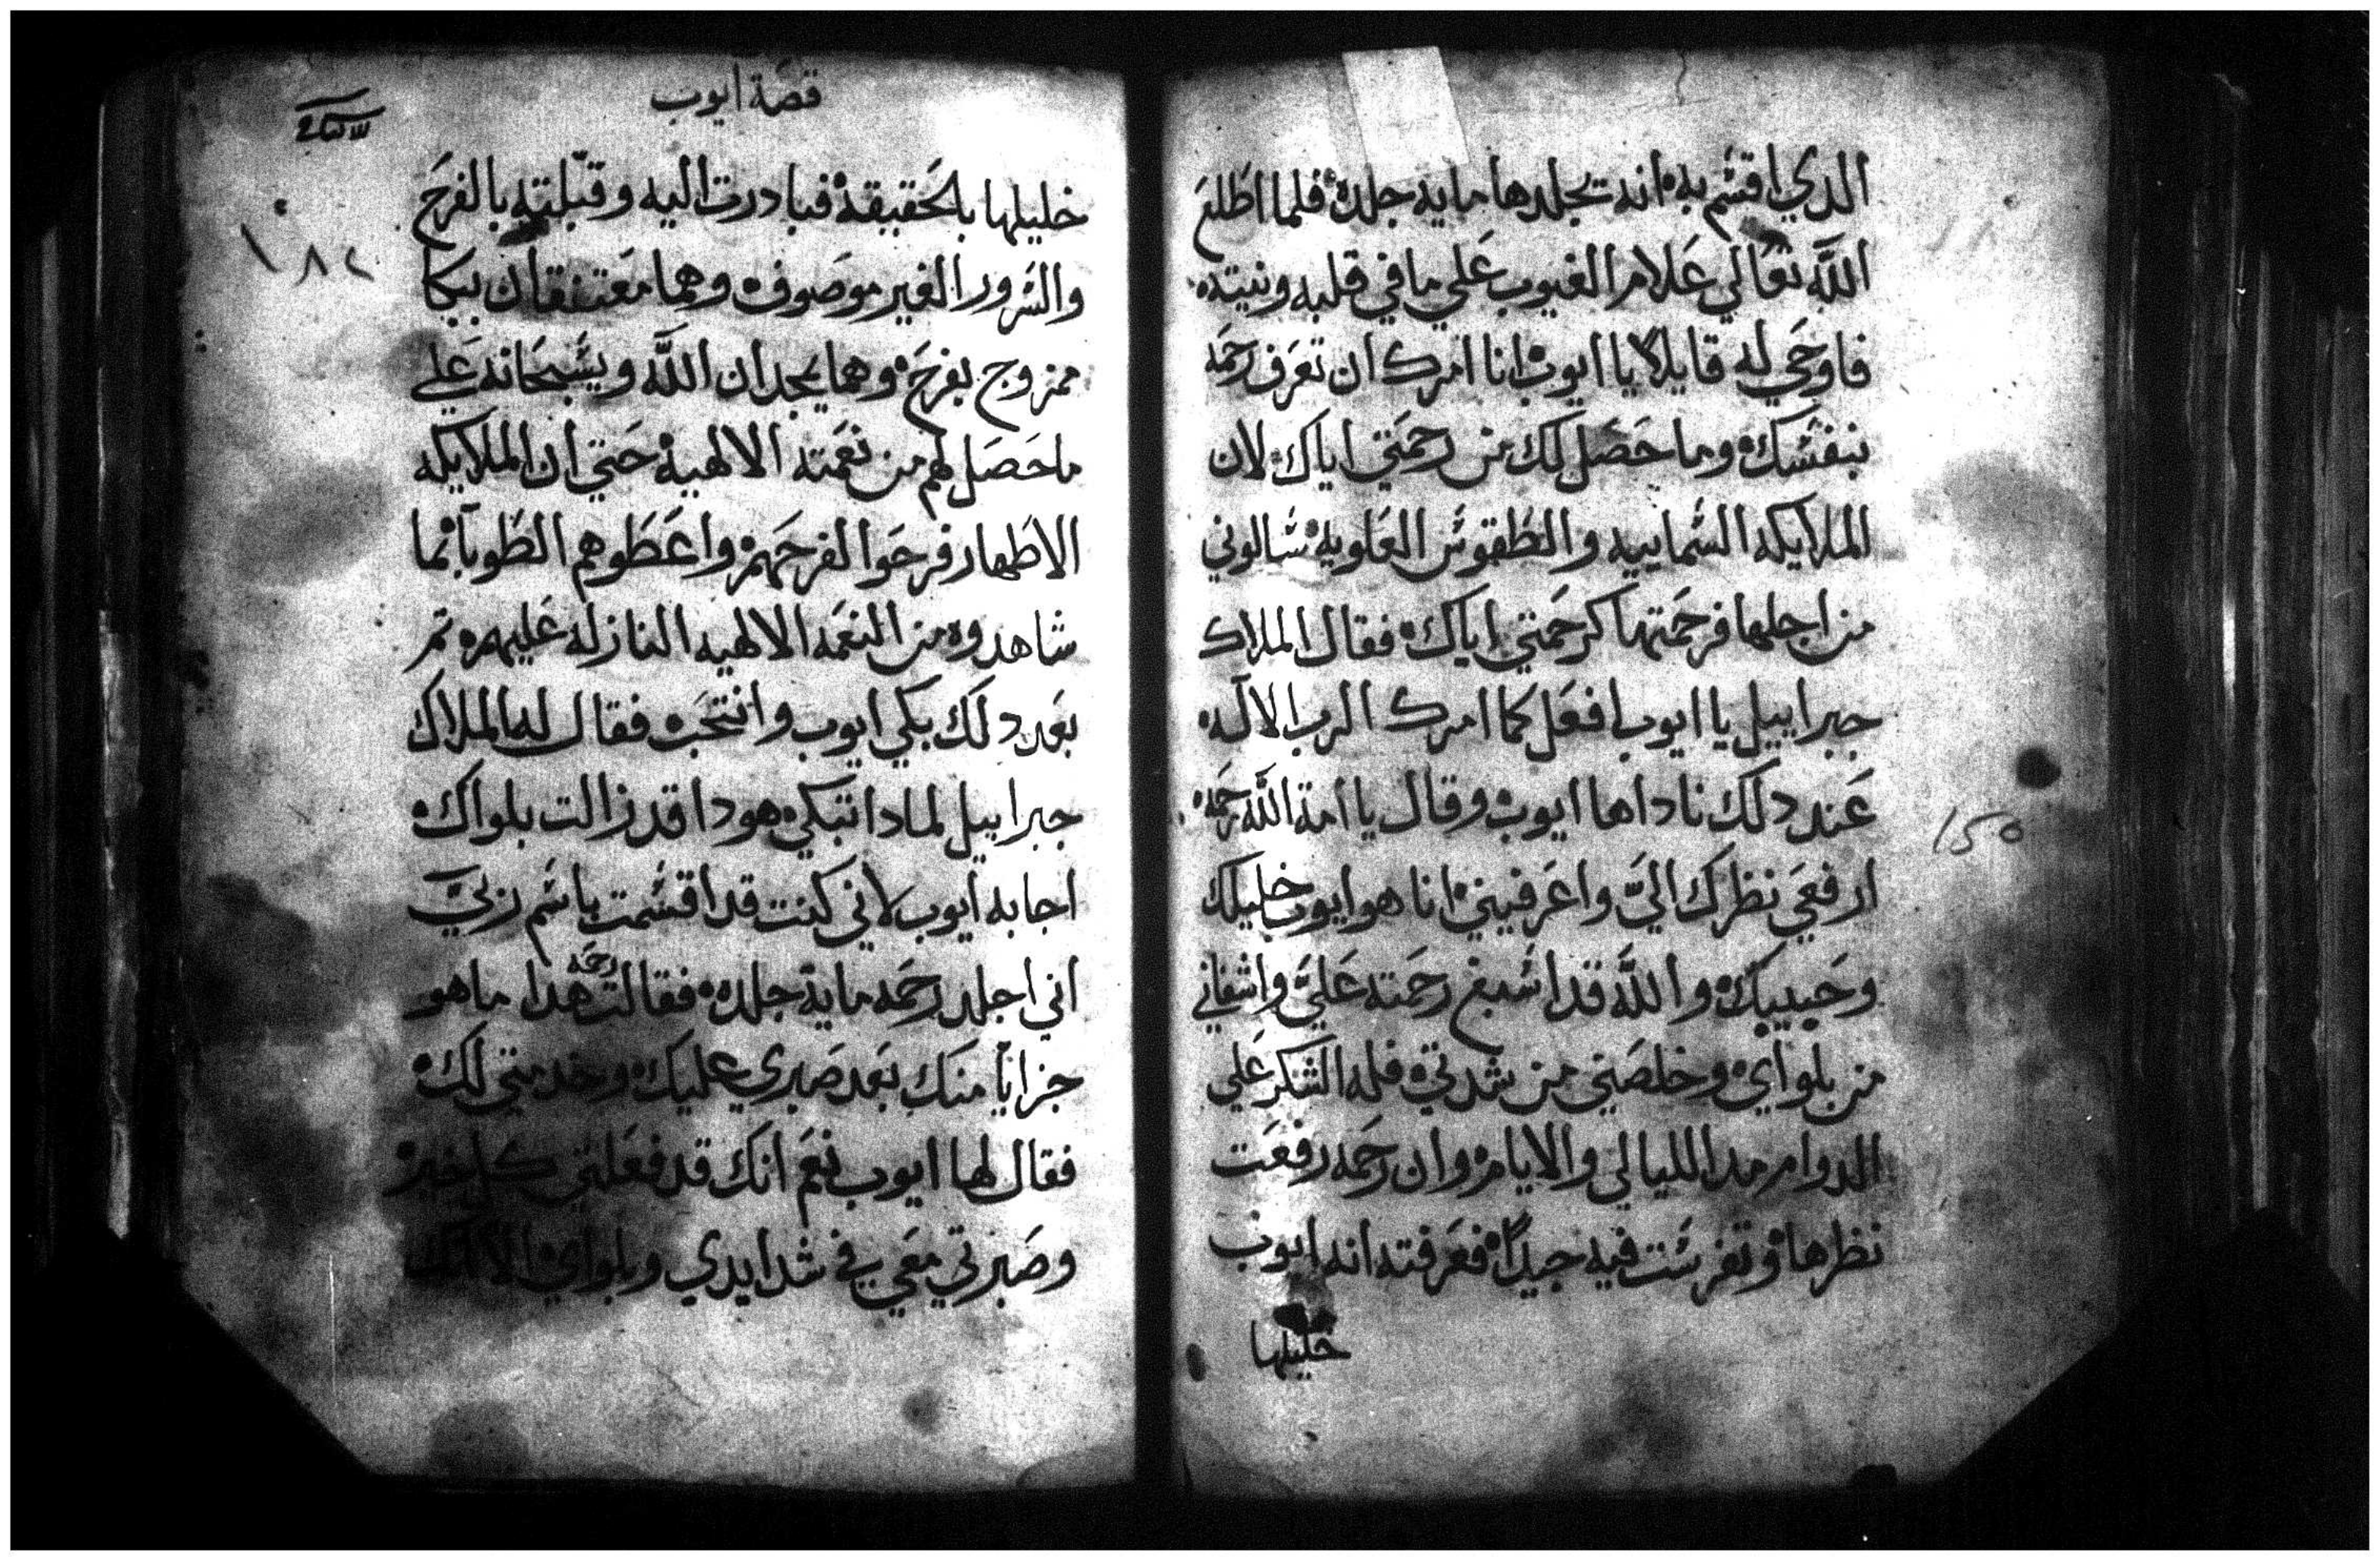 الدي اقسم به انه يجلدها ماية جلده فلما اطلع
الله تعالي علام الغيوب علي ما في قلبه ونيته
فاوحي له قايلا يا ايوب انا امرك ان تعرف رحمه
بنفسك وما حصل لك من رحمتي اياك لان
الملايكه السماييه والطقوس العلويه سالوني
من اجلها فرحمتها كرحمتي اياك فقال الملاك
جبراييل يا ايوب افعل كما امرك الرب الاله
عند دلك ناداها ايوب وقال يا امة الله رحمه
ارفعي نظرك الي واعرفيني انا هو ايوب خليلك
وحبيبك والله قد اسبغ رحمته علي واشفاني
من بلواي وخلصني من شدتي فله الشكر علي
الدوام مدا الليالي والايام وان رحمه رفعت
نظرها وتفرست فيه جيدا فعرفته انه ايوب
خليلها
قصة ايوب
١٨٢
خليلها بالحقيقه فبادرت اليه وقبلته بالفرح
والسرور الغير موصوف وهما معتنقان ببكا
ممزوج بفرح وهما يمجدان الله ويسبحانه علي
ما حصل لهم من نعمته الالهيه حتي ان الملايكه
الاطهار فرحوا لفرحهم واعطوهم الطوبا بما
شاهدوه من النعمه الالهيه النازله عليهم تم
بعد دلك بكي ايوب وانتحب فقال له الملاك
جبراييل لمادا تبكي هودا قد زالت بلواك
اجابه ايوب لاني كنت قد اقسمت باسم ربي
اني اجلد رحمه ماية جلده فقالت رحمه هدا ما هو
جزايا منك بعد صبري عليك وخدمتي لك
فقال لها ايوب نعم انك قد فعلتي كل خير
وصبرتي معي في شدايدي وبلواي الا انك
150